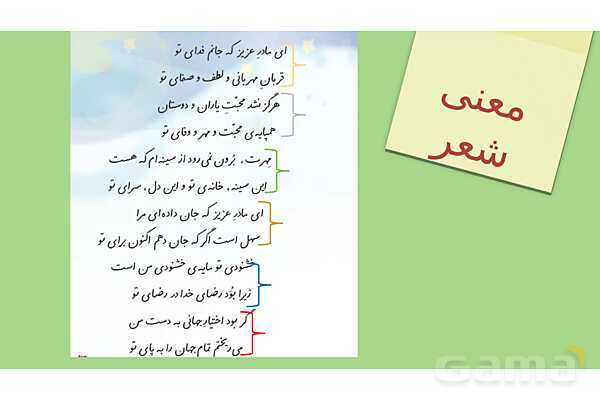 معنی
شعر
ای مادرِ عزیز که جانم فدای تو
قربانِ مهربانی و لطف و صفای تو
هرگز نشد محبّتِ یاران و دوستان
همپایه‌ی محبّت و مهر و وفای تو
مِهرت، بُرون نمی‌رود از سینه‌ام که هست
این سینه، خانه‌ی تو و این دل، سرای تو
ای مادرِ عزیز که جان داده‌ای مرا
سهل است اگر که جان دهم اکنون برای تو
خشنودی تو مایه‌ی خشنودی من است
زیرا بُوَد رضای خدا در رضای تو
گر بود اختیارِ جهانی به دست من
می‌ریختم تمام جهان را به پای تو
Gama